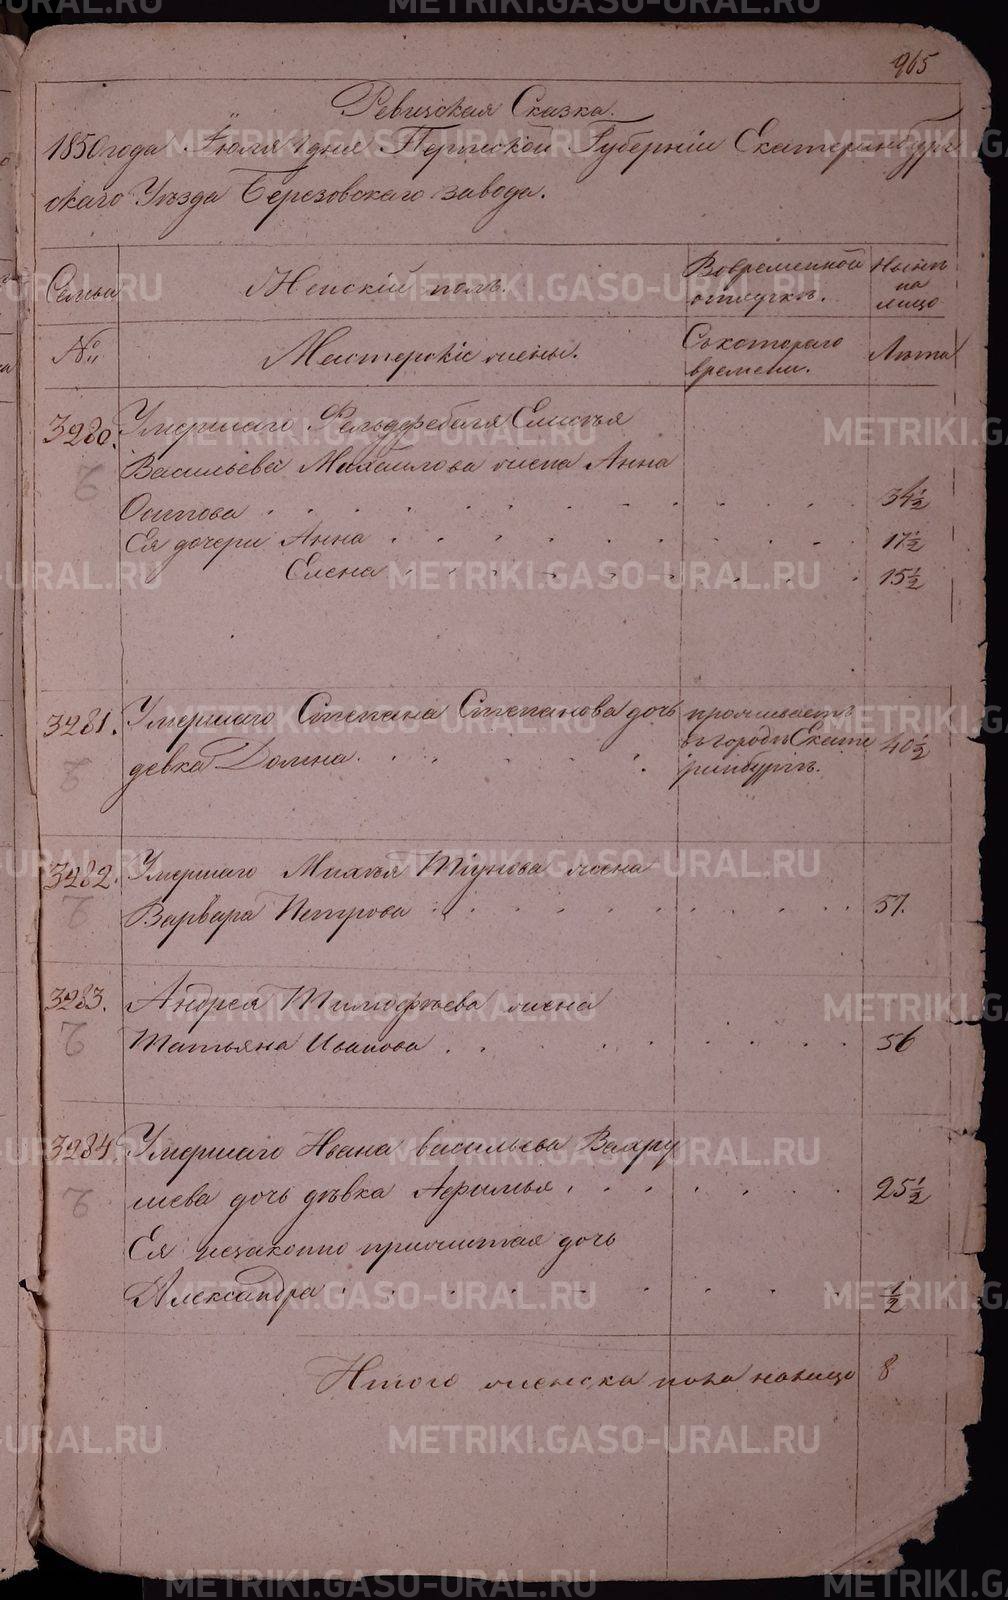 965
Ревизская Сказка.
1850 года Іюля 1 дня Пермской Губерніи Екатеринбург
скаго Уѣзда Березовскаго завода.
Семьи
Женскій полъ.
Во временной отлучкѣ.
Нынѣ на лицо
№
Мастерскіе жены.
Съ котораго времени.
Лѣта
3280. Умершаго Фельдфебеля Елисѣя
Васильева Михайлова жена Анна
Осипова 34 1/2
Ея дочери Анна 17 1/2
Елена 15 1/2
3281. Умершаго Степана Степанова дочь проживаетъ
девка Домна въ городѣ Екате 40 1/2
ринбургѣ.
3282. Умершаго Михѣя Тіунова жена
Варвара Петрова 57.
3283. Андрея Тимофѣева жена
Татьяна Иванова 56
3284. Умершаго Ивана Васильева Вахру
шева дочь дѣвка Афимья 25 1/2
Ея незаконно прижитая дочь
Александра 1/2
Итого женска пола налицо 8
METRIKI.GASO-URAL.RU